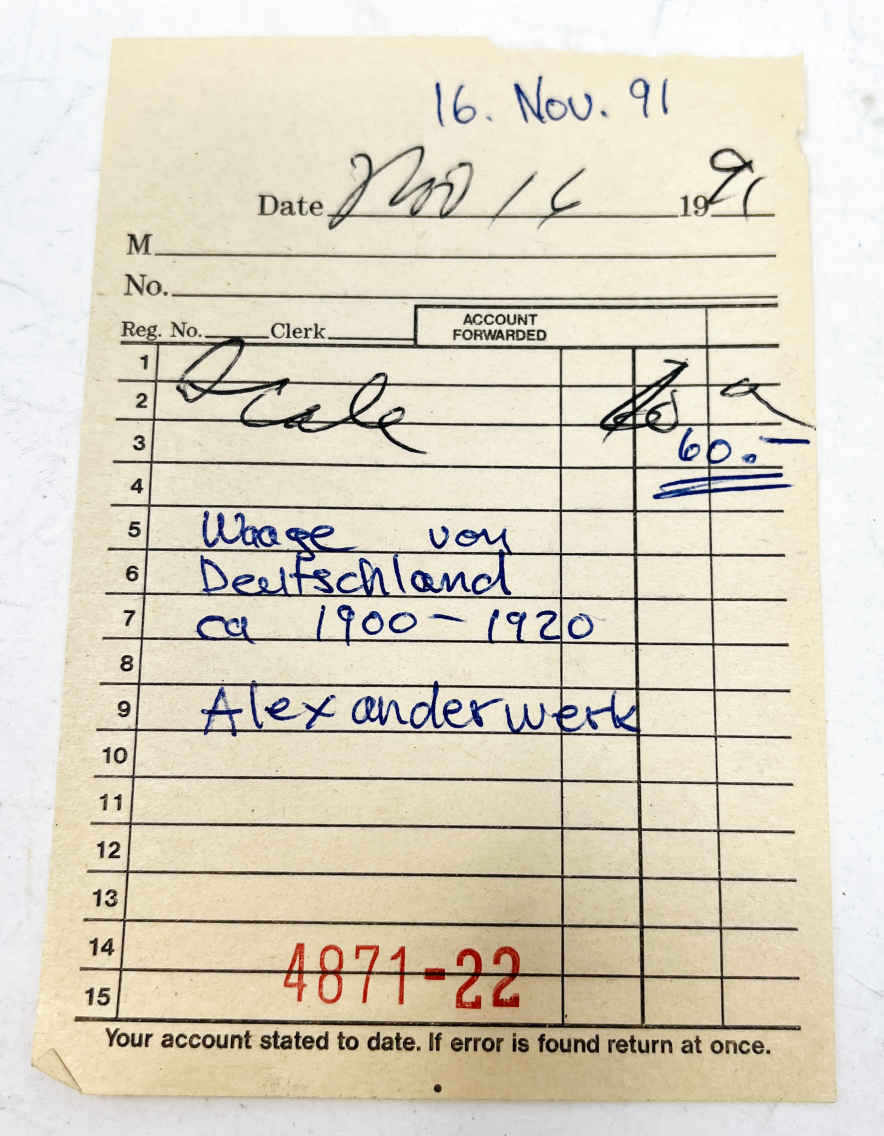 16. Nov. 91
Date Nov 16 1991
M
No.
Reg. No. Clerk ACCOUNT FORWARDED
1
2 Scale
3 60.-
4
5 Waage von
6 Deutschland
7 ca 1900 - 1920
8
9 Alexanderwerk
10
11
12
13
14
15
4871-22
Your account stated to date. If error is found return at once.